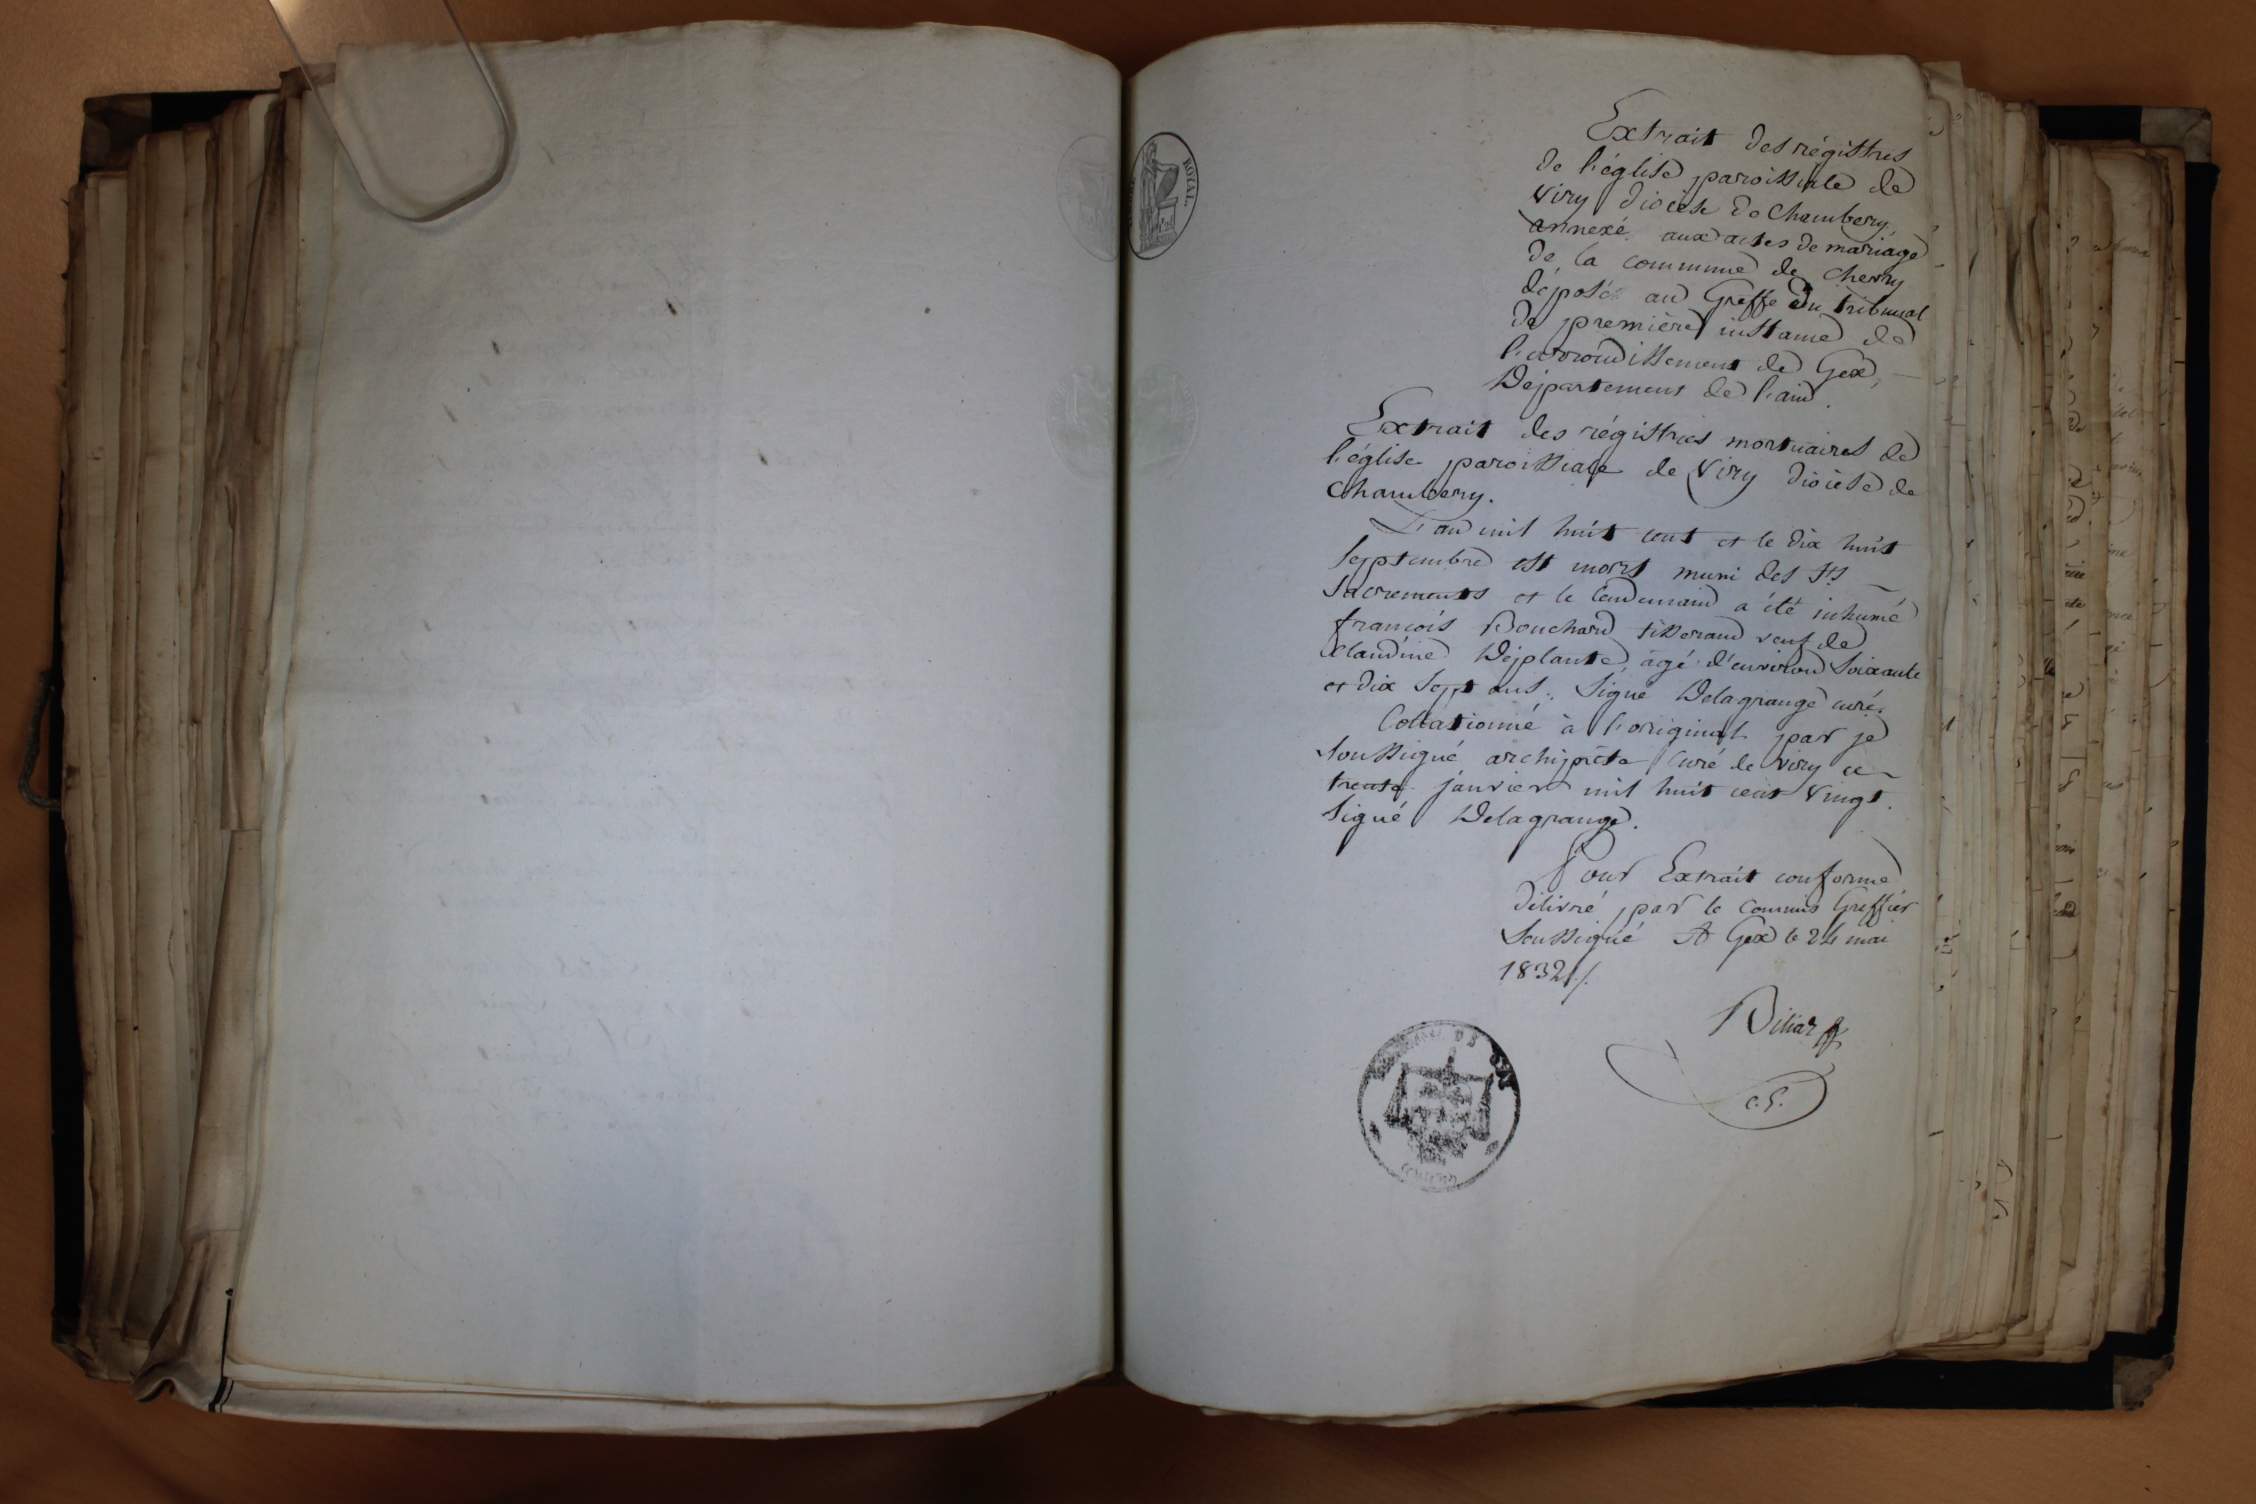 ROYAL.
Extrait des régistres
de l'église paroissiale de
Viry diocèse de Chambery,
annexé aux actes de mariage
de la commune de Chevry
déposé au Greffe du tribunal
de première instance de
l'arrondissement de Gex,
Département de l'ain.
Extrait des régistres mortuaires de
l'église paroissiale de Viry diocèse de
Chambery.
L'an mil huit cent et le dix huit
Septembre est mort muni des Sts
Sacrements et le lendemain a été inhumé
françois Bouchard tisserand veuf de
Claudine Déplante, agé d'environ Soixante
et dix Sept ans. Signé Delagrange curé.
Collationné à l'original par je
Soussigné archiprêtre Curé de Viry ce
trente janvier mil huit cent Vingt.
Signé Delagrange.
Pour Extrait conforme
délivré par le Commis Greffier
Soussigné A Gex le 24 mai
1832./.
C.G.